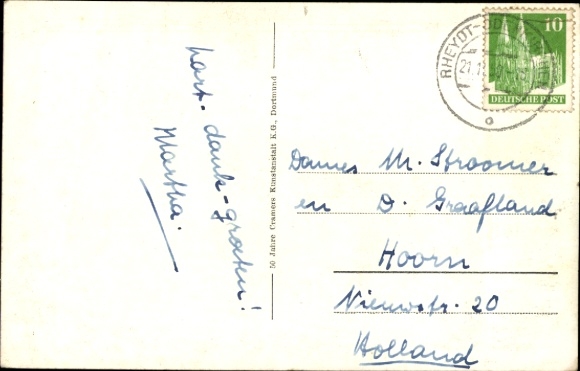 hart. dank-groeten!
Martha.
50 Jahre Cramers Kunstanstalt K.G., Dortmund
RHEYDT-
21.1
a
10
DEUTSCHE POST
Dames M. Stroomer
en D. Graafland
Hoorn
Nieuwstr. 20
Holland